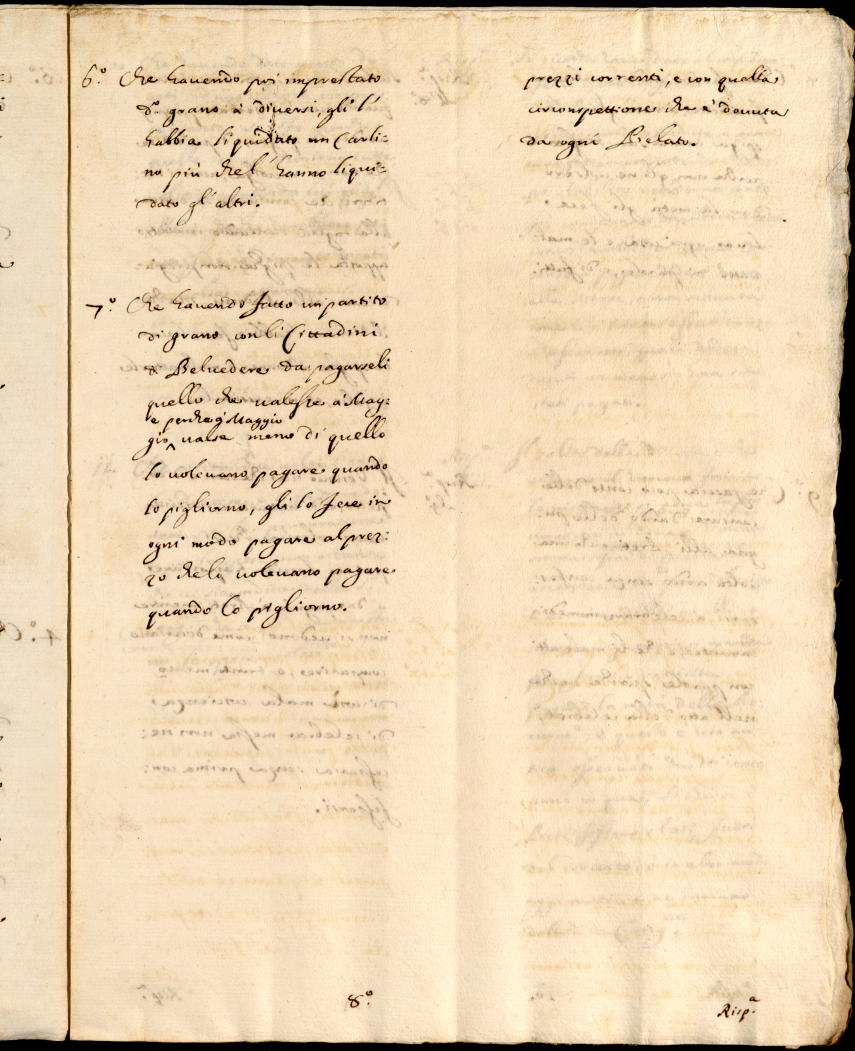 6.° Che havendo poi imprestato
d.° grano à diversi, gli l'
habbia liquidato un Carli=
no più che l'hanno liqui=
dato gl'altri.
7.° Che havendo fatto un partito
di grano con li Cittadini
di Belvedere da pagarseli
quello che valesse à Mag=
e perche à Maggio
gio, valse meno di quello
lo volevano pagare quando
lo pigliorno, gli lo fece in
ogni modo pagare al prez=
zo che lo volevano pagare
quando lo pigliorno.
8.°
prezzi correnti, e con quella
circonspettione che è dovuta
da ogni Prelato.
Risp.ª